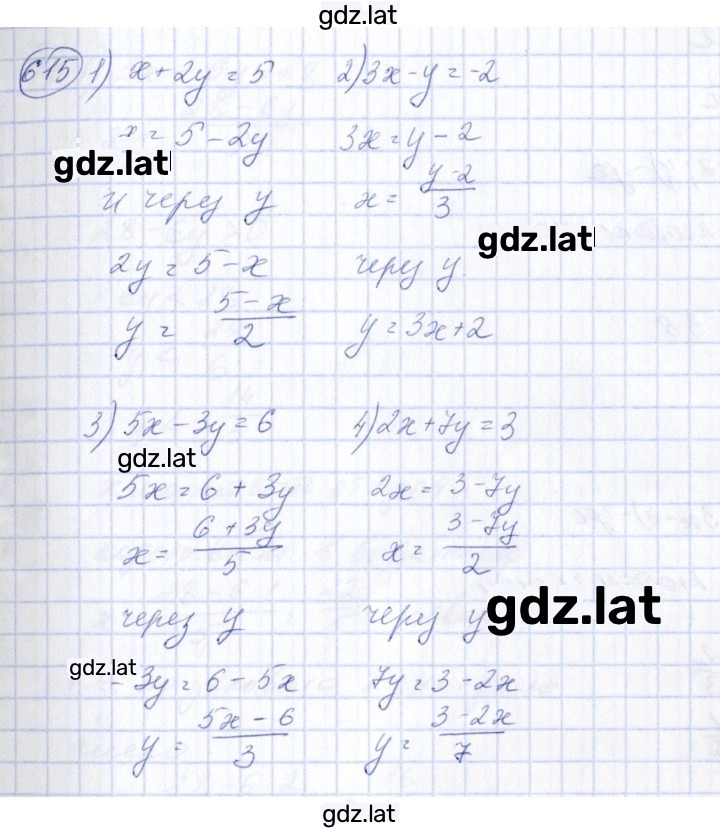 gdz.lat
615 1) x + 2y = 5
x = 5 - 2y
gdz.lat
и через y
2y = 5 - x
y = (5 - x)/2
2) 3x - y = -2
3x = y - 2
x = (y - 2)/3
gdz.lat
через y.
y = 3x + 2
3) 5x - 3y = 6
gdz.lat
5x = 6 + 3y
x = (6 + 3y)/5
через y
gdz.lat
-3y = 6 - 5x
y = (5x - 6)/3
4) 2x + 7y = 3
2x = 3 - 7y
x = (3 - 7y)/2
через y
gdz.lat
7y = 3 - 2x
y = (3 - 2x)/7
gdz.lat